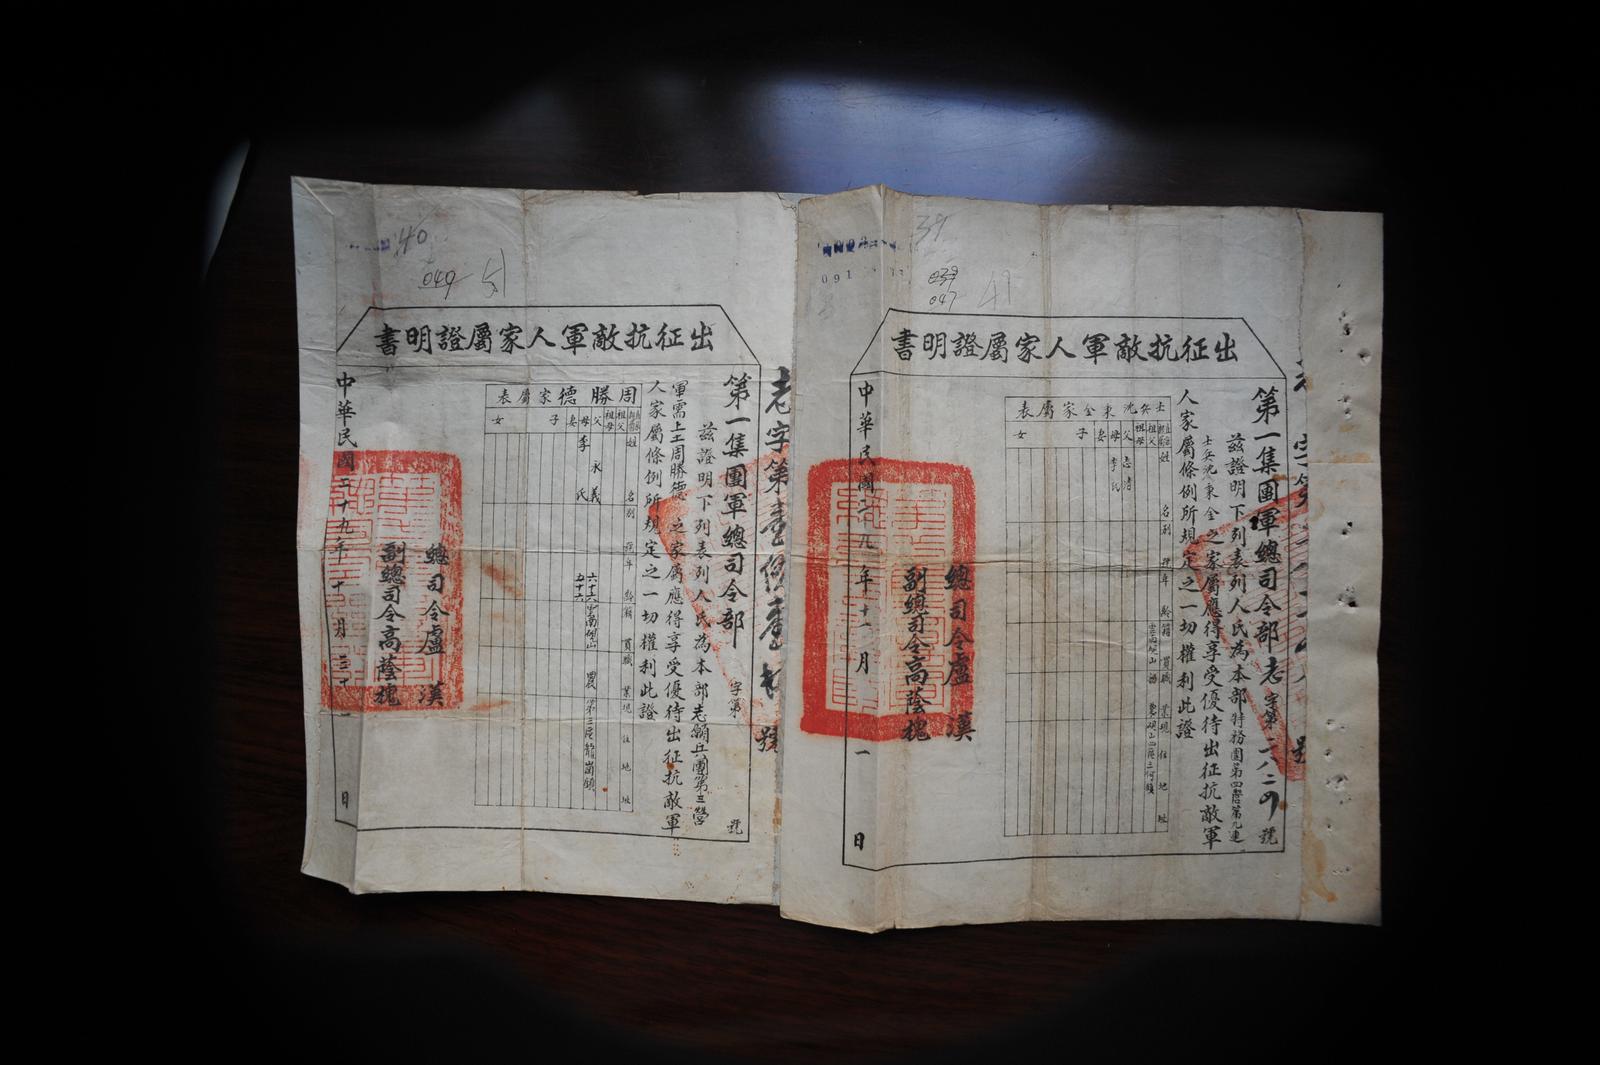 40
049
51
出征抗敵軍人家屬證明書
老字第
號
第一集團軍總司令部
字第
號
茲證明下列表列人氏為本部志願兵團第三營
軍需上士周勝德之家屬應得享受優待出征抗敵軍
人家屬條例所規定之一切權利此證
周勝德家屬表
姓名別
年齡
籍貫
職業
現住地址
祖父
祖母
父
永義
六十六
雲南硯山
農
母
李氏
五十六
妻
子
女
總司令盧漢
副總司令高蔭槐
中華民國二十九年十一月三十一日
39
091
039
047
49
出征抗敵軍人家屬證明書
第一集團軍總司令部老字第二八二の號
茲證明下列表列人氏為本部特務團第四營第九連
士兵沈東金之家屬應得享受優待出征抗敵軍
人家屬條例所規定之一切權利此證
士兵沈東金家屬表
姓名別
年齡
籍貫
職業
現住地址
祖父
祖母
父
母
李氏
妻
子
女
總司令盧漢
副總司令高蔭槐
中華民國二十九年十一月一日